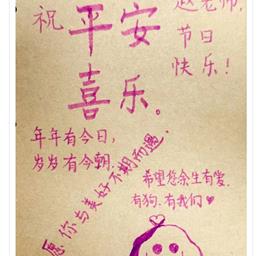 赵老师,
节日
快乐!
祝平安
喜乐。
年年有今日,
岁岁有今朝.
愿你与美好不期而遇.
希望您余生有爱.
有狗.有我们♥